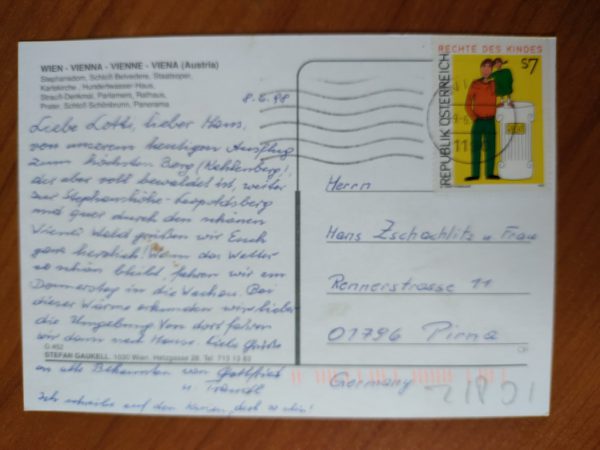 WIEN - VIENNA - VIENNE - VIENA (Austria)
Stephansdom, Schloß Belvedere, Staatsoper,
Karlskirche, Hundertwasser Haus,
Strauß-Denkmal, Parlament, Rathaus,
Prater, Schloß Schönbrunn, Panorama
8.6.98
Liebe Lotti, lieber Hans,
von unserem heutigen Ausflug
zum höchsten Berg
der aber voll bewaldet ist, weiter
zur Stephanshöhe - Leopoldsberg
und quer durch den schönen
Wiener Wald grüßen wir Euch
ganz herzlich! Wenn das Wetter
so schön bleibt, fahren wir am
Donnerstag in die Wachau. Bei
dieser Wärme erkunden wir lieber
die Umgebung. Von dort fahren
wir dann nach Hause. Viele Grüße
G 452
STEFAN GAUKELL, 1030 Wien, Hetzgasse 28 Tel. 715 13 83
an alle Bekannten von Gottfried
u. Traudl
Ich schreibe auf den Knien, doch
RECHTE DES KINDES
S7
REPUBLIK ÖSTERREICH
Herrn
Hans Zschachlitz u. Frau
Rennerstrasse 11
01796 Pirna
Germany